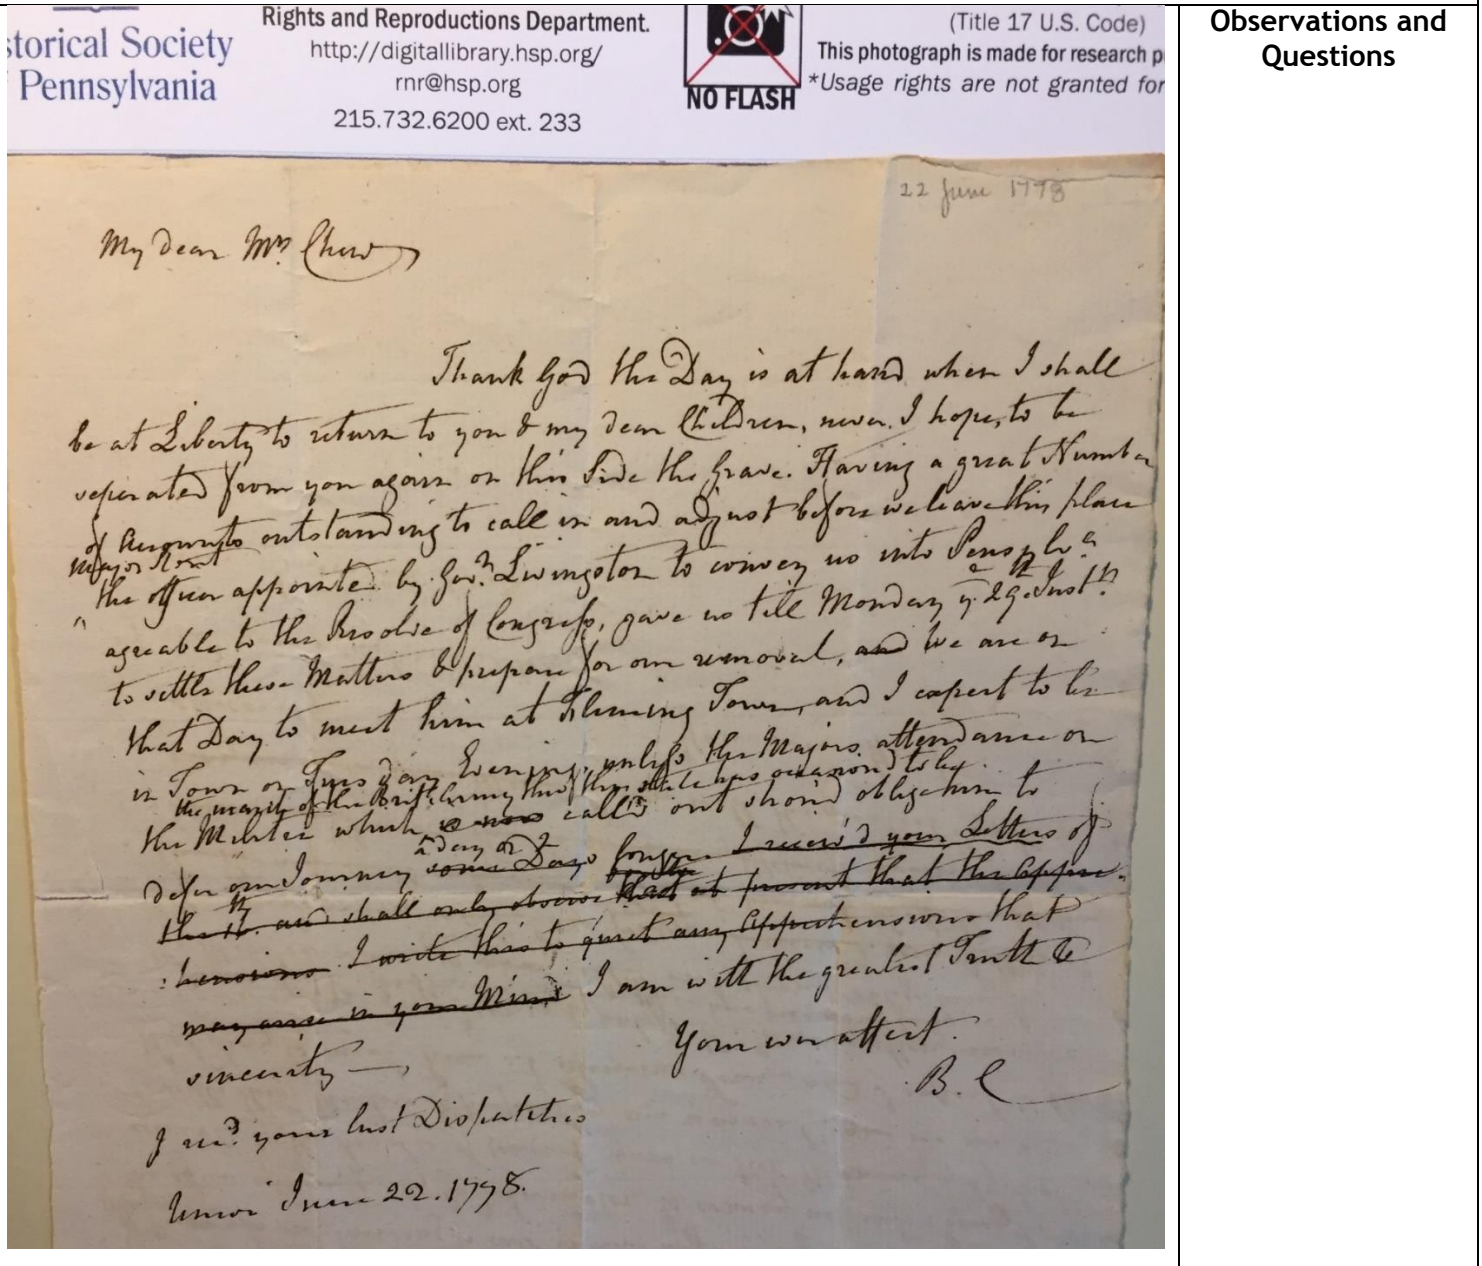 storical Society
Pennsylvania
Rights and Reproductions Department.
http://digitallibrary.hsp.org/
rnr@hsp.org
215.732.6200 ext. 233
NO FLASH
(Title 17 U.S. Code)
This photograph is made for research p
*Usage rights are not granted for
Observations and
Questions
22 June 1778
My dear Mrs. Chew
Thank God the Day is at hand when I shall
be at Liberty to return to you & my dear Children, never, I hope, to be
seperated from you again on this Side the Grave. Having a great Number
of Accounts outstanding to call in and adjust before we leave this place
Major
the officer appointed by Govr. Livingston to convey us into Pensylva
agreable to the Resolve of Congress, gave us till Monday ye 29th Instt.
to settle these Matters & prepare for our removal, and We are on
that Day to meet him at Fleming Town, and I expect to be
in Town on Tuesday Evening, unless the Majors attendance on
the march of the British Army thro' this State has occasiond to be
the Militia which is now call'd out should oblige him to
a day or 2
defer our Journey some Days longer I receiv'd your Letters of
the and shall only observe that at present that the Appre-
:hensions I write this to quiet any Apprehensions that
may arise in your Mind I am with the greatest Truth &
sincerity
Your ever affect.
B. C
I recd. your last Dispatches
Union June 22. 1778.